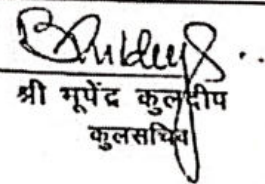 श्री भूपेंद्र कुलदीप
कुलसचिव